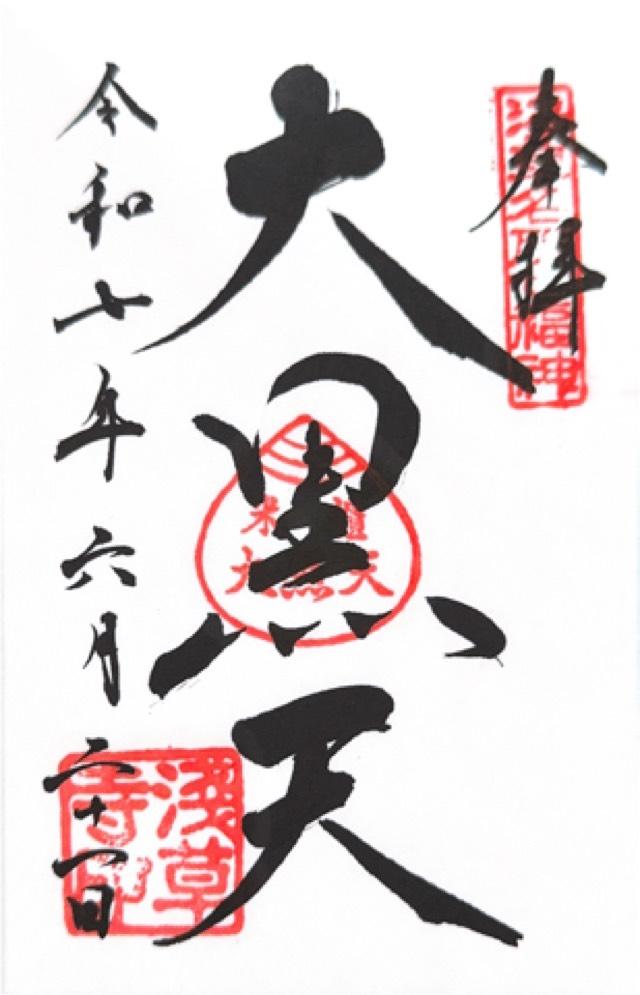 奉拝
浅草名所七福神
大黒天
米櫃
大黒天
令和七年六月二十一日
浅草
寺印